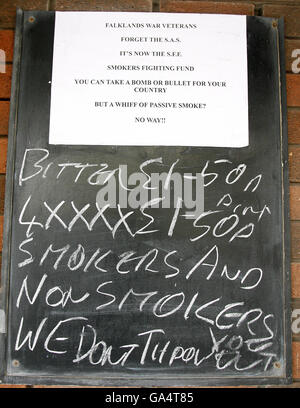 FALKLANDS WAR VETERANS
FORGET THE S.A.S.
IT'S NOW THE S.F.F.
SMOKERS FIGHTING FUND
YOU CAN TAKE A BOMB OR BULLET FOR YOUR
COUNTRY
BUT A WHIFF OF PASSIVE SMOKE?
NO WAY!!
BITTER £1-50p
4XXXX £1-50p PINT
SMOKERS AND
NON SMOKERS
WE DONT THROW YOU OUT
alamy
Image ID: GA4T85
www.alamy.com